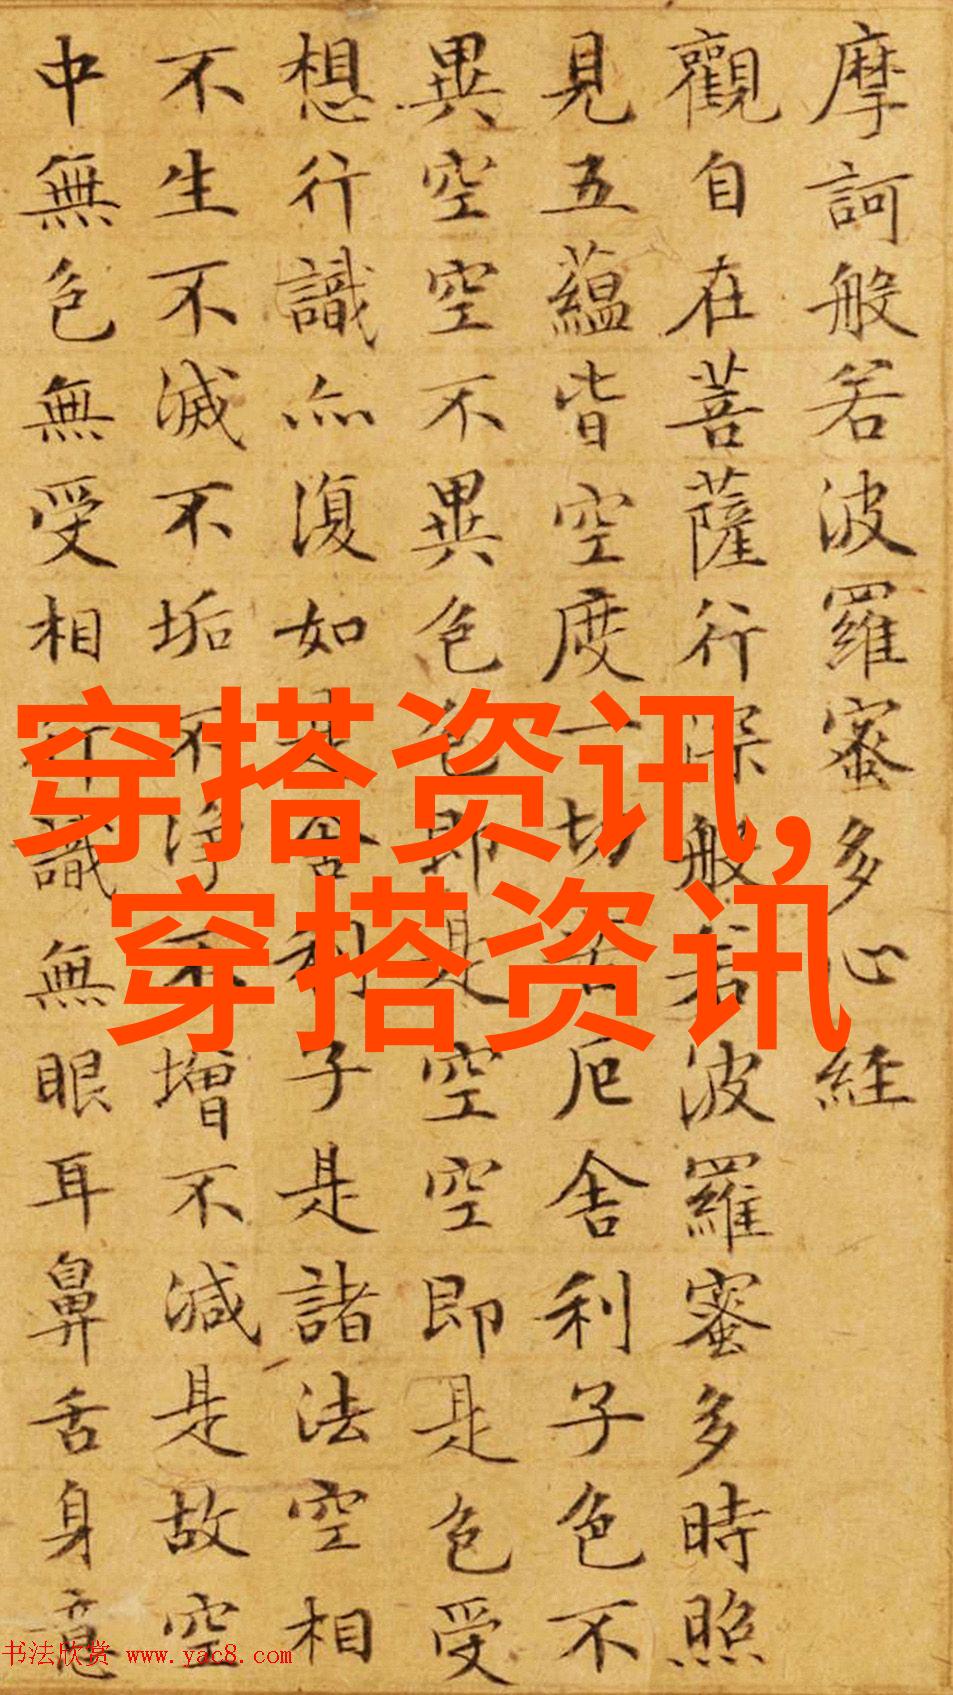 摩訶般若波羅蜜多心経
觀自在菩薩行深般若波羅蜜多時照
見五蘊皆空度一切苦厄舍利子色不
異空空不異色色即是空空即是色受
想行識亦復如是舍利子是諸法空相
不生不滅不垢不浄不增不減是故空
中無色無受想行識無眼耳鼻舌身意
穿搭资讯,
穿搭资讯
书法欣赏 www.yac8.com